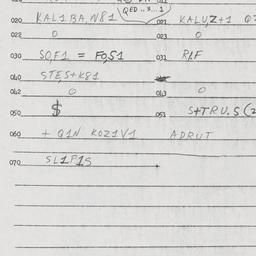 QED..X...1
020 KAL1BA,N81 021 KALU,Z+1
022 0 023 0
030 SQF1 = FQS1 031 RLF
040 STES+K81
042 0 043 0
050 $ 051 S+TRU.S(2
060 + Q1N KOZ1V1 ADRUT
070 SL1P1S